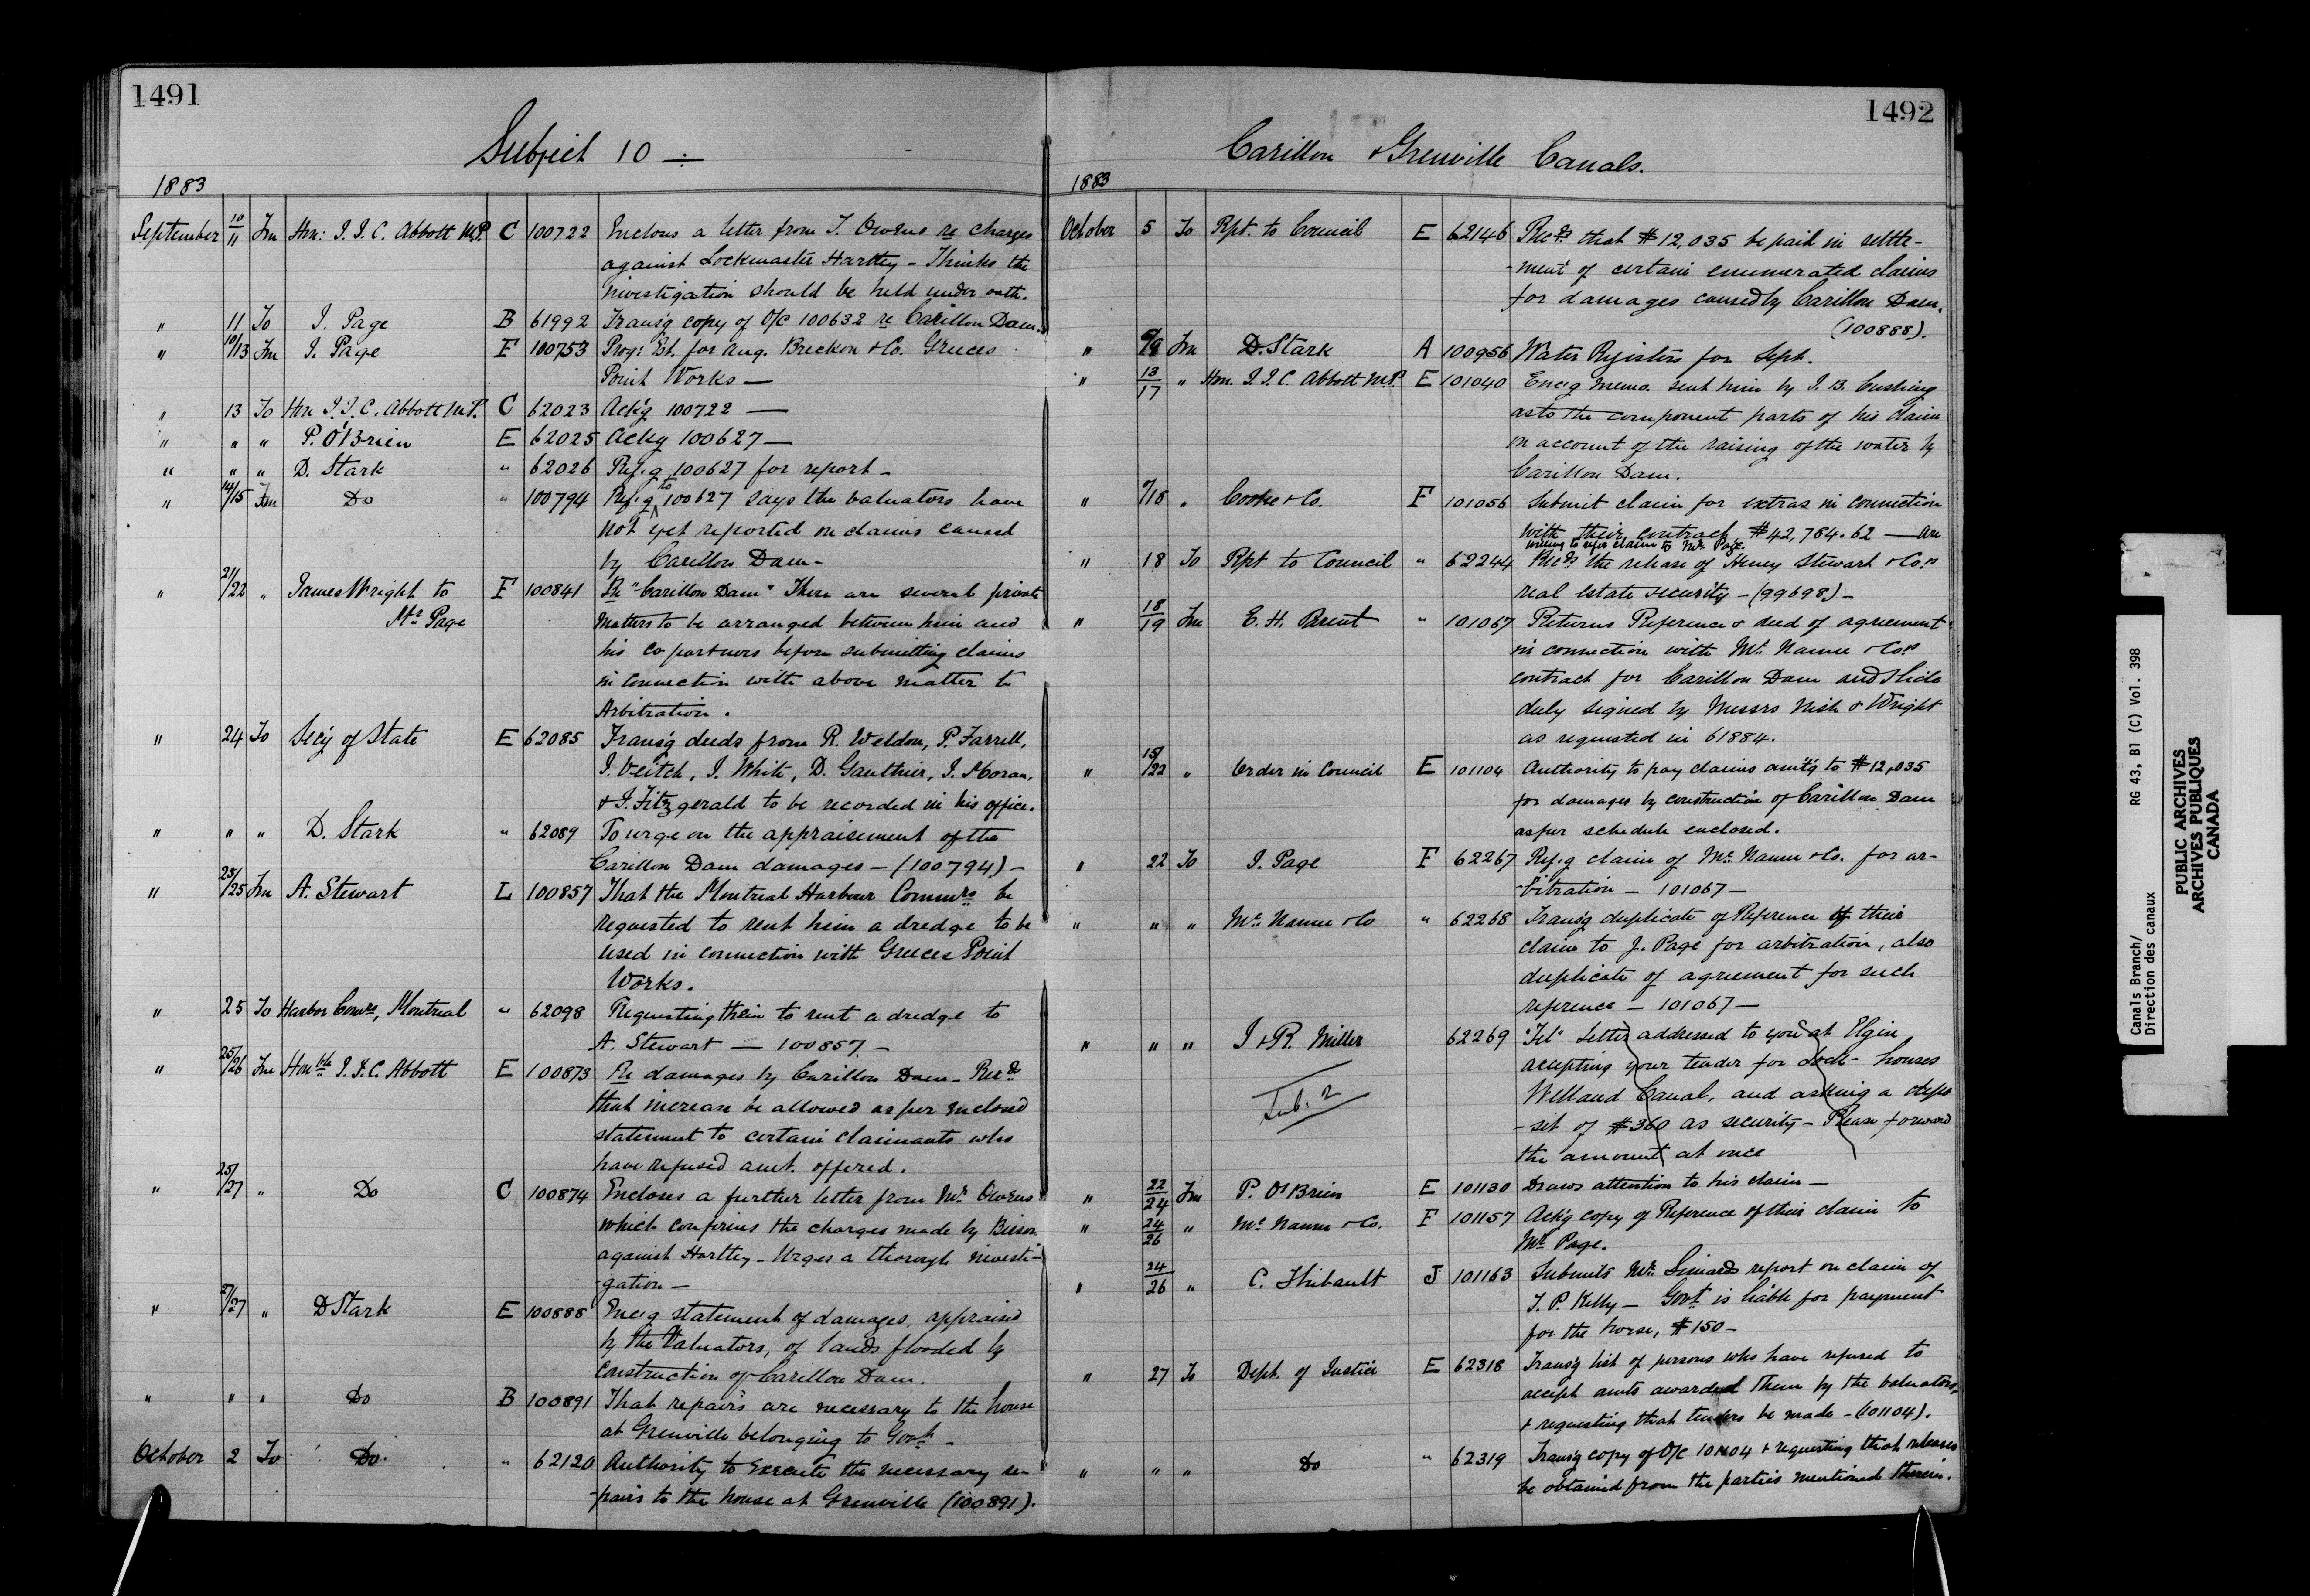 1491
Subject 10 —
1883
September 10/11 Fm Hon: J. J. C. Abbott M.P. C 100722 Enclous a letter from T. Owens re charges
against Lockmaster Hartley - Thinks the
investigation should be held under oath.
" 11 To J. Page B 61992 Trans'g copy of O/C 100632 re Carillon Dam.
" 10/13 Fm J. Page F 100753 Prog: Est. for Aug. Breckon & Co. Greeces
Point Works —
" 13 To Hon J. J. C. Abbott M.P. C 62023 Ack'g 100722 —
" " " P. O'Brien E 62025 Ackg 100627 —
" " " D. Stark " 62026 Ref.g 100627 for report -
" 14/15 Fm Do " 100794 Ref.g to 100627 says the valuators have
not yet reported on claims caused
by Carillon Dam -
" 21/22 " James Wright to F 100841 Re "Carillon Dam" There are several private
Mr Page matters to be arranged between him and
his copartners before submitting claims
in connection with above matter to
Arbitration.
" 24 To Sec'y of State E 62085 Trans'g deeds from R. Weldon, P. Farrell,
J. Veitch, J. White, D. Gauthier, J. Moran,
& J. Fitzgerald to be recorded in his office.
" " " D. Stark " 62089 To urge on the appraisement of the
Carillon Dam damages - (100794) -
" 25/25 Fm A. Stewart L 100857 That the Montreal Harbour Commrs be
requested to rent him a dredge to be
used in connection with Greeces Point
Works.
" 25 To Harbor Comrs, Montreal " 62098 Requesting them to rent a dredge to
A. Stewart — 100857 -
" 25/26 Fm Honble J. J. C. Abbott E 100873 Re damages by Carillon Dam - Recds
that increase be allowed as per enclosed
statement to certain claimants who
have refused amt. offered.
" 25/27 " Do C 100874 Encloses a further letter from Mr Owens
which confirms the charges made by Bisson
against Hartley - Urges a thorough investi-
-gation -
" 27/27 " D Stark E 100888 Enc'g statement of damages, appraised
by the Valuators, of lands flooded by
construction of Carillon Dam.
" " " Do B 100891 That repairs are necessary to the house
at Grenville belonging to Govt -
October 2 To Do. " 62120 Authority to execute the necessary re-
-pairs to the house at Grenville (100891).
1492
Carillon & Grenville Canals.
1883
October 5 To Rpt. to Council E 62146 Recds. that $12,035 be paid in settle-
-ment of certain enumerated claims
for damages caused by Carillon Dam.
(100888).
" 6/9 Fm D. Stark A 100956 Water Registers for Sept.
" 13/17 " Hon. J. J. C. Abbott M.P. E 101040 Enc'g memo. sent him by J. B. Cushing
as to the component parts of his claim
on account of the raising of the water by
Carillon Dam.
" /18 " Cooke & Co. F 101056 Submit claim for extras in connection
with their contract $42,784.62 — are
willing to refer claim to Mr. Page.
" 18 To Rpt to Council " 62244 Recds the release of Henry Stewart & Co.s
real estate security - (99698) -
" 18/19 Fm E. H. Brent " 101067 Returns Reference & deed of agreement
in connection with Mc Namee & Co.s
contract for Carillon Dam and Slide
duly signed by Messrs Nish & Wright
as requested in 61884.
" 15/22 " Order in Council E 101104 Authority to pay claims amt'g to $12,035
for damages by construction of Carillon Dam
as per schedule enclosed.
" 22 To J. Page F 62267 Ref.g claim of Mc Namee & Co. for ar-
-bitration — 101067 —
" " " Mc Namee & Co " 62268 Trans'g duplicate of Reference of their
claim to J. Page for arbitration, also
duplicate of agreement for such
reference — 101067 —
" " " J & R. Miller 62269 "Tel" Letter addressed to you at Elgin
accepting your tender for Lock-houses
Welland Canal, and asking a depo
-sit of $360 as security - Please forward
the amount at once
Sub. 2
" 22/24 Fm P. O'Brien E 101130 Draws attention to his claim —
" 24/26 " Mc Namee & Co. F 101157 Ack'g copy of Reference of their claim to
Mr Page.
" 24/26 " C. Thibault J 101163 Submits Mr. Simards report on claim of
T. P. Kelly — Govt. is liable for payment
for the horse, $150 -
" 27 To Dept. of Justice E 62318 Trans'g list of persons who have refused to
accept amts awarded them by the valuators,
& requesting that tenders be made - (101104).
" " " Do " 62319 Trans'g copy of O/C 101104 & requesting that releases
be obtained from the parties mentioned therein.
Canals Branch/ RG 43, B1 (C) Vol. 398
Direction des canaux
PUBLIC ARCHIVES
ARCHIVES PUBLIQUES
CANADA